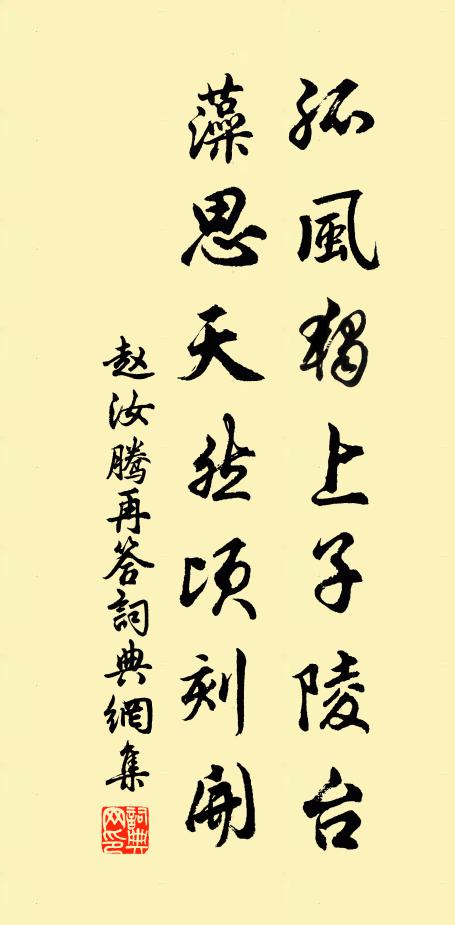 孤風獨上子陵台
藻思天然頃刻開
赵汝腾再答詞典網集
詞典网印